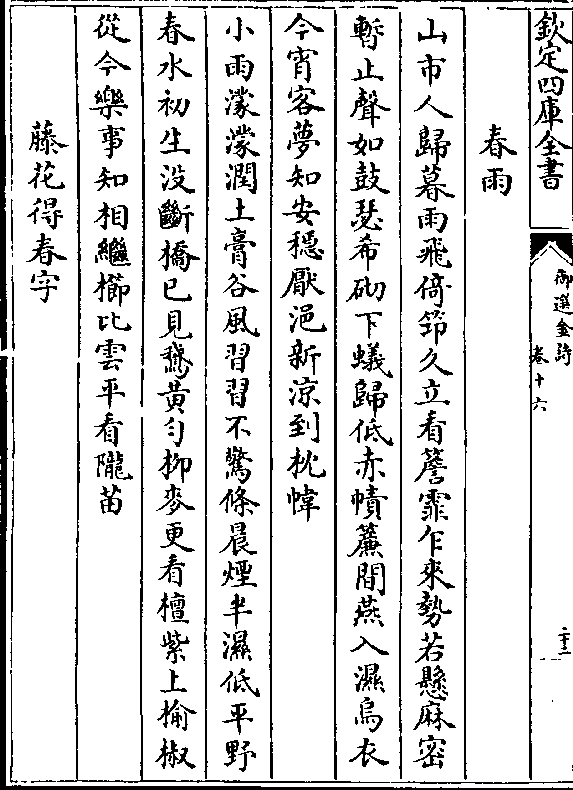 欽定四庫全書
御選金詩
卷十六
二十二
春雨
山市人歸暮雨飛倚筇久立看簷霏乍來勢若懸麻密
暫止聲如鼓瑟希砌下蟻歸低赤幘簾間燕入濕烏衣
今宵客夢知安穩厭浥新涼到枕幃
小雨濛濛潤土膏谷風習習不驚條晨煙半濕低平野
春水初生没斷橋已見鵞黄勻柳麥更看檀紫上榆椒
從今樂事知相繼櫛比雲平看隴苗
藤花得春字